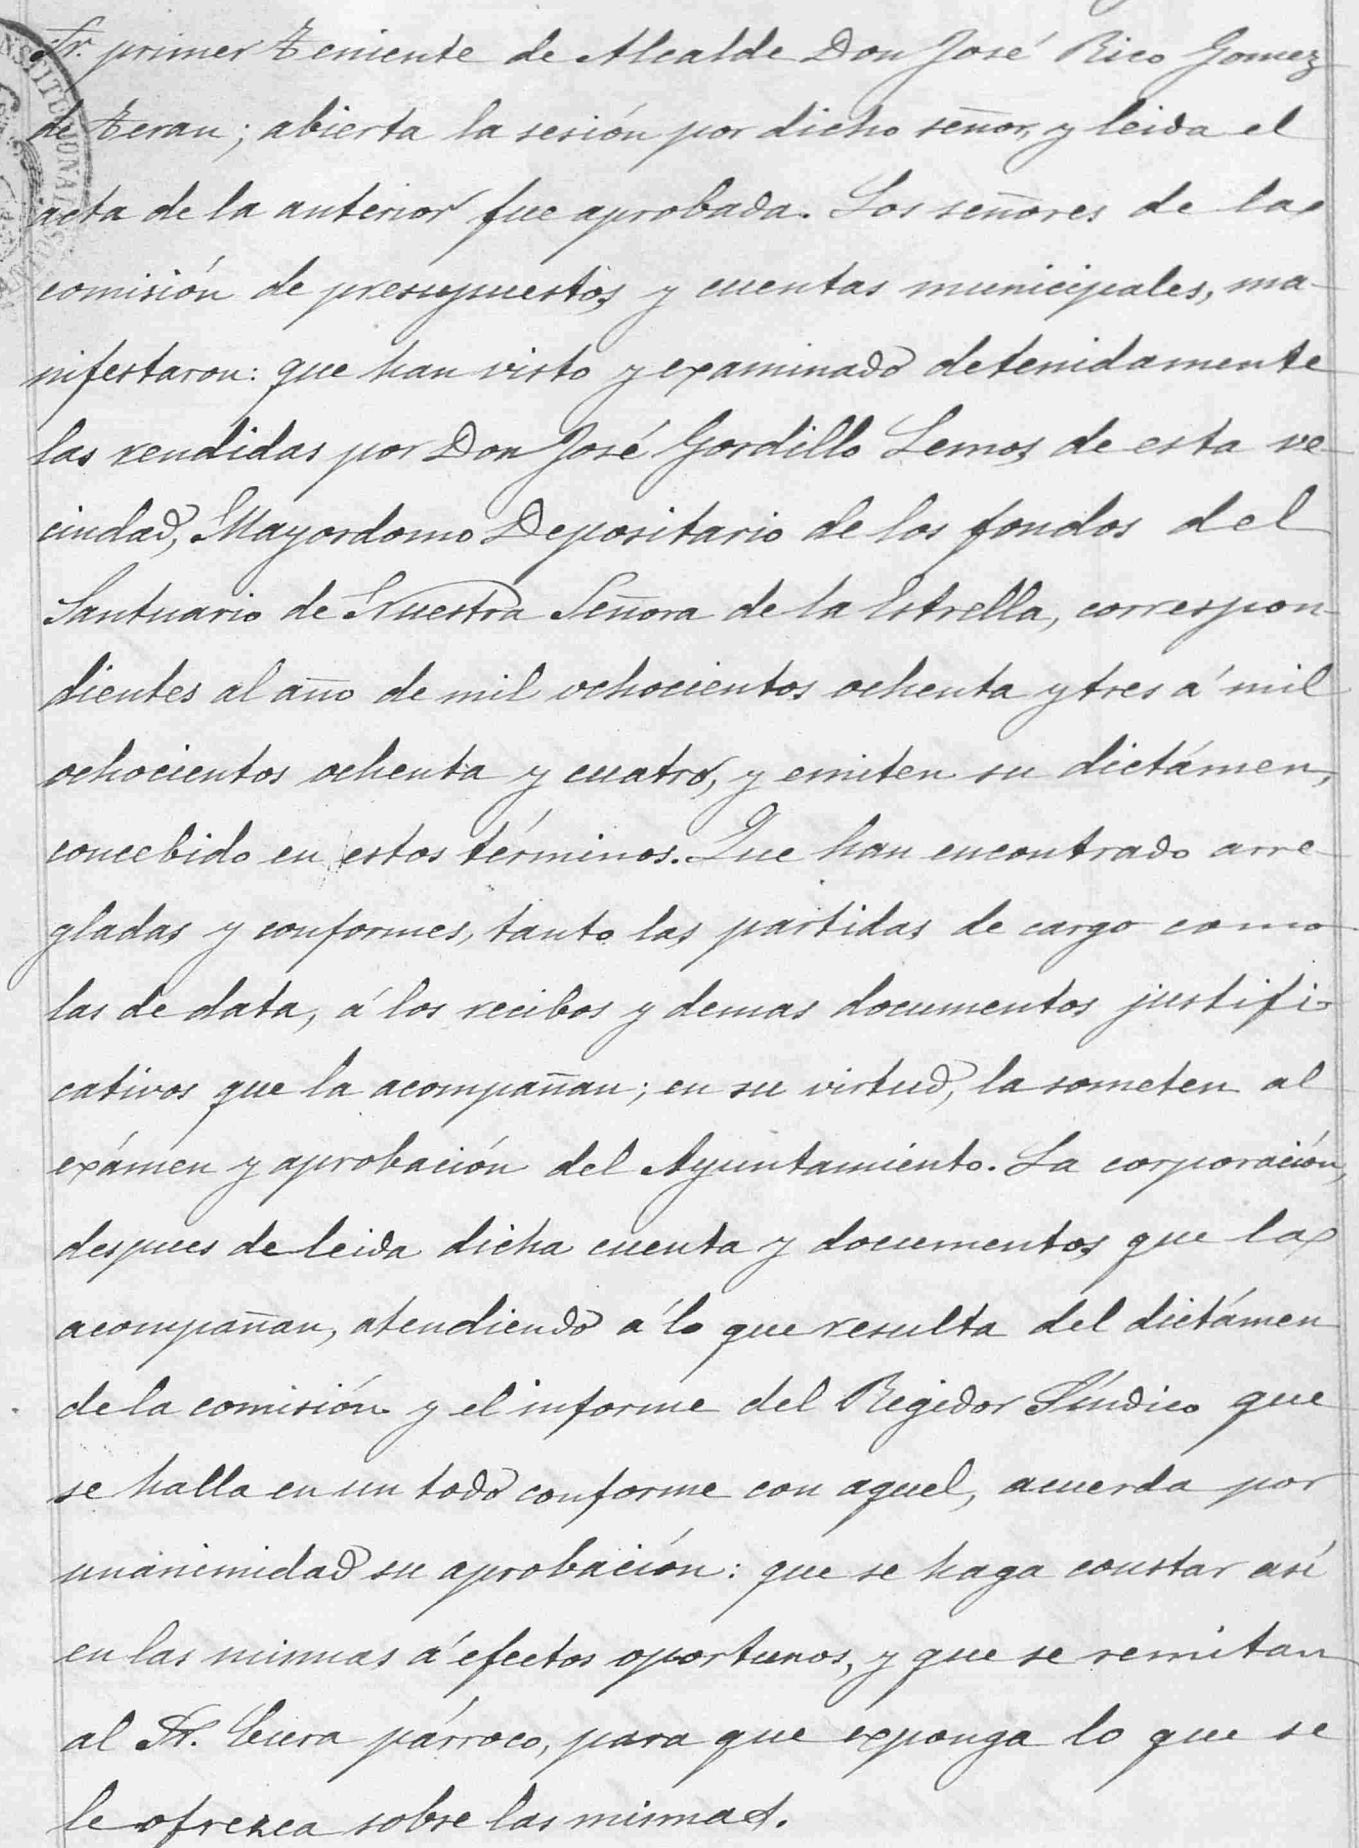 Sr. primer Teniente de Alcalde Don José Rico Gomez
de Teran; abierta la sesión por dicho señor, y leida el
acta de la anterior fue aprobada. Los señores de la
comisión de presupuestos y cuentas municipales, ma-
nifestaron: que han visto y examinado detenidamente
las rendidas por Don José Gordillo Lemos de esta ve-
cindad, Mayordomo Depositario de los fondos del
Santuario de Nuestra Señora de la Estrella, correspon-
dientes al año de mil ochocientos ochenta y tres á mil
ochocientos ochenta y cuatro, y emiten su dictámen,
concebido en estos términos. Que han encontrado arre-
gladas y conformes, tanto las partidas de cargo como
las de data, á los recibos y demas documentos justifi-
cativos que la acompañan; en su virtud, la someten al
exámen y aprobación del Ayuntamiento. La corporación,
despues de leida dicha cuenta y documentos que la
acompañan, atendiendo á lo que resulta del dictámen
de la comisión y el informe del Regidor Síndico que
se halla en un todo conforme con aquel, acuerda por
unanimidad su aprobación: que se haga constar así
en las mismas á efectos oportunos, y que se remitan
al Sr. Cura párroco, para que exponga lo que se
le ofrezca sobre las mismas.